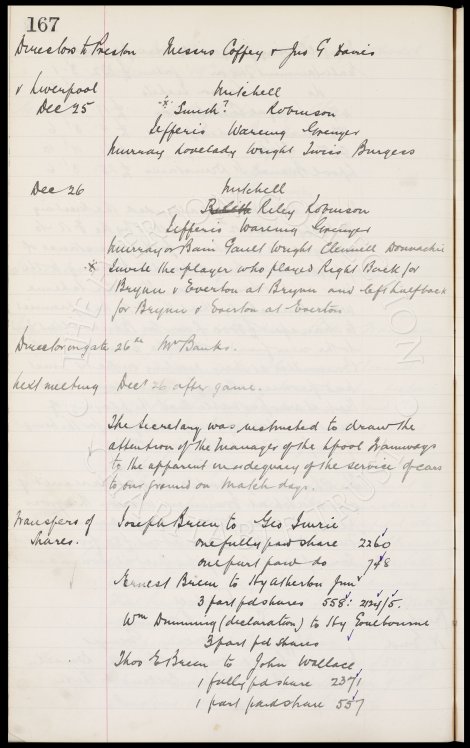 167
Directors to Preston Messrs Coffey & Jno G Davis
v Liverpool Mitchell
Dec 25 x Smith? Robinson
Jefferis Wareing Grenyer
Murray Lovelady Wright Twiss Burgess
Dec 26 Mitchell
Riley Robinson
Jefferis Wareing Grenyer
Murray or Bain Gault Wright Clennell Donnachie
x Invite the player who played Right Back for
Brynn v Everton at Brynn and left halfback
for Brynn v Everton at Everton
Director on gate 26th Mr Banks.
Next meeting Dec 26 after game.
The Secretary was instructed to draw the
attention of the Manager of the Lpool Tramways
to the apparent inadequacy of the service of cars
to our ground on match days.
Transfers of Joseph Brien to Geo Imrie
Shares. one fully paid share 2260
one part paid do 748
Ernest Brien to Hy Atherton Junr
3 part pd shares 558:
Wm Dumming (declaration) to Hy Goulbourne
3 part pd shares
Thos E Brien to John Wallace
1 fully pd share 2371
1 part paid share 557